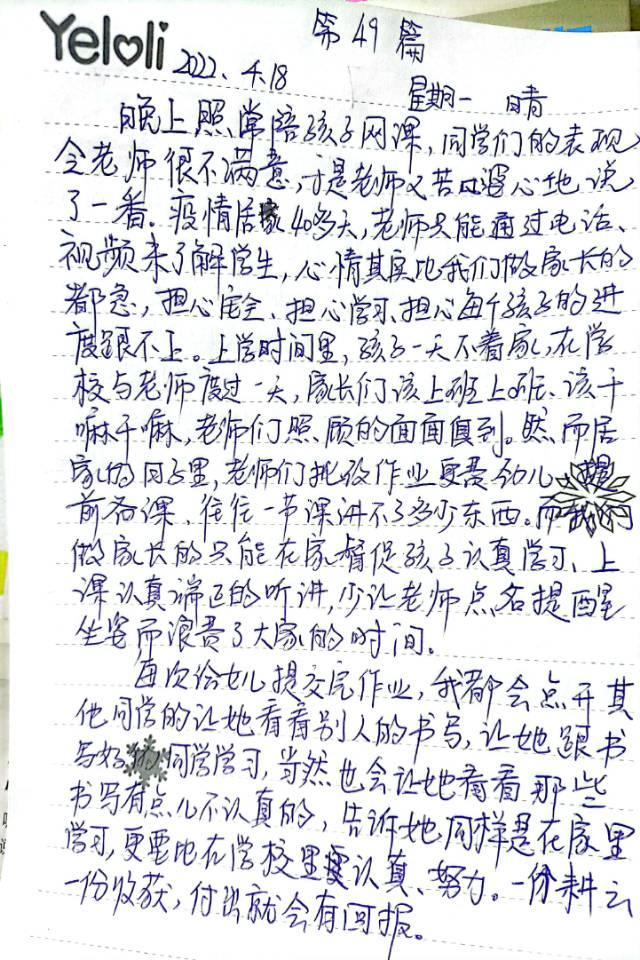 Yeloli
第49篇
2022.4.18
星期一 晴
晚上照常陪孩子网课,同学们的表现
令老师很不满意,于是老师又苦口婆心地说
了一番。疫情居家40多天,老师只能通过电话、
视频来了解学生,心情其实比我们做家长的
都急,担心安全、担心学习、担心每个孩子的进
度跟不上。上学时间里,孩子一天不着家,在学
校与老师度过一天,家长们该上班上班、该干
嘛干嘛,老师们照顾的面面俱到。然而居
家的日子里,老师们批改作业更费劲儿、提
前备课、往往一节课讲不了多少东西。而我们
做家长的只能在家督促孩子认真学习、上
课认真端正的听讲,少让老师点名提醒
坐姿而浪费了大家的时间。
每次给女儿提交完作业,我都会点开其
他同学的让她看看别人的书写,让她跟书
写好的同学学习,当然也会让她看看那些
书写有点儿不认真的,告诉她同样是在家里
学习,更要比在学校里更认真、努力。一份耕云
一份收获,付出就会有回报。